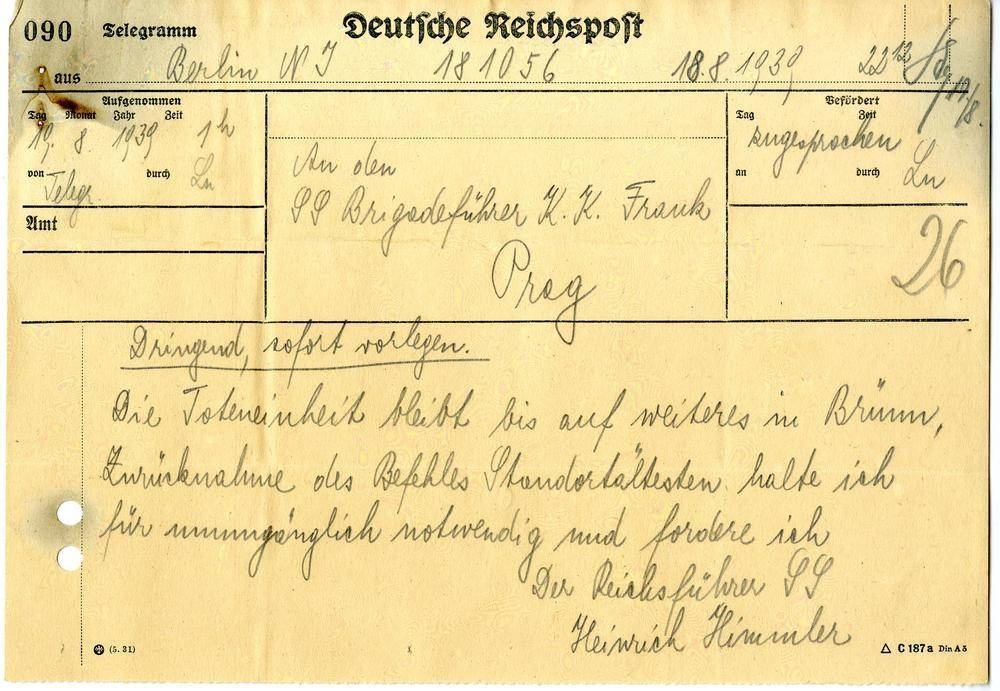 090 Telegramm Deutsche Reichspost
aus Berlin N 18 10 56 18.8.1939 22 12
Aufgenommen
Tag Monat Jahr Zeit
19. 8. 1939 1 h
von durch
Telegr. Lu
Amt
An den
SS Brigadeführer K. K. Frank
Prag
Befördert
Tag Zeit
zugesprochen
an durch
Lu
26
Dringend, sofort vorlegen.
Die Toteneinheit bleibt bis auf weiteres in Brünn,
Zurücknahme des Befehles Standortältesten halte ich
für unumgänglich notwendig und fordere ich
Der Reichsführer SS
Heinrich Himmler
(5. 31)
C 187a Din A5